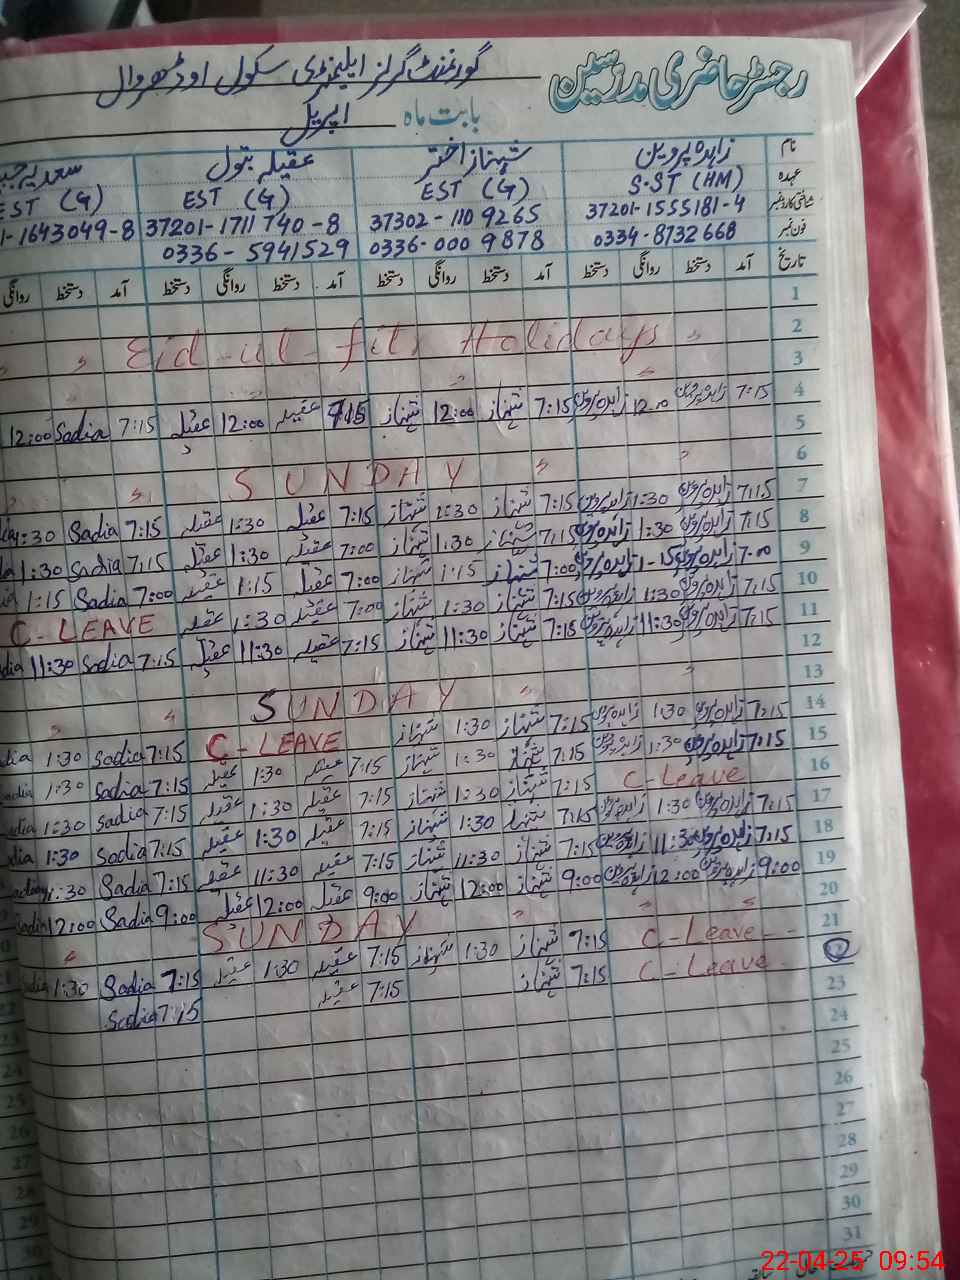 رجسٹر حاضری مدرسین
گورنمنٹ گرلز ایلیمنٹری سکول اوڈھروال
بابت ماہ اپریل
نام زاہدہ پروین شہناز اختر عقیلہ بتول سعدیہ
عہدہ S.ST (HM) EST (G) EST (G) EST (G)
شناختی کارڈ نمبر 37201-1555181-4 37302-1109265 37201-1711740-8 1-1643049-8
فون نمبر 0334-8732668 0336-0009878 0336-5941529
تاریخ آمد دستخط روانگی دستخط آمد دستخط روانگی دستخط آمد دستخط روانگی دستخط آمد دستخط روانگی
1
2
Eid-ul-fitr Holidays
3
4 7:15 زاہدہ پروین 12:00 زاہدہ پروین 7:15 شہناز 12:00 شہناز 7:15 عقیلہ 12:00 عقیلہ 7:15 Sadia 12:00
5
6 SUNDAY
7 7:15 زاہدہ پروین 1:30 زاہدہ پروین 7:15 شہناز 1:30 شہناز 7:15 عقیلہ 1:30 عقیلہ 7:15 Sadia 1:30
8 7:15 زاہدہ پروین 1:30 زاہدہ پروین 7:15 شہناز 1:30 شہناز 7:00 عقیلہ 1:30 عقیلہ 7:15 Sadia 1:30
9 7:00 زاہدہ پروین 1-15 زاہدہ پروین 7:00 شہناز 1:15 شہناز 7:00 عقیلہ 1:15 عقیلہ 7:00 Sadia 1:15
10 7:15 زاہدہ پروین 1:30 زاہدہ پروین 7:15 شہناز 1:30 شہناز 7:00 عقیلہ 1:30 عقیلہ C-LEAVE
11 7:15 زاہدہ پروین 11:30 زاہدہ پروین 7:15 شہناز 11:30 شہناز 7:15 عقیلہ 11:30 عقیلہ 7:15 Sadia 11:30
12
13 SUNDAY
14 7:15 زاہدہ پروین 1:30 زاہدہ پروین 7:15 شہناز 1:30 شہناز C-LEAVE 7:15 Sadia 1:30
15 7:15 زاہدہ پروین 1:30 زاہدہ پروین 7:15 شہناز 1:30 شہناز 7:15 عقیلہ 1:30 عقیلہ 7:15 Sadia 1:30
16 C-Leave 7:15 شہناز 1:30 شہناز 7:15 عقیلہ 1:30 عقیلہ 7:15 Sadia 1:30
17 7:15 زاہدہ پروین 1:30 زاہدہ پروین 7:15 شہناز 1:30 شہناز 7:15 عقیلہ 1:30 عقیلہ 7:15 Sadia 1:30
18 7:15 زاہدہ پروین 11:30 زاہدہ پروین 7:15 شہناز 11:30 شہناز 7:15 عقیلہ 11:30 عقیلہ 7:15 Sadia 11:30
19 9:00 زاہدہ پروین 12:00 زاہدہ پروین 9:00 شہناز 12:00 شہناز 9:00 عقیلہ 12:00 عقیلہ 9:00 Sadia 12:00 Sadia
20 SUNDAY
21 C-Leave 7:15 شہناز 1:30 شہناز 7:15 عقیلہ 1:30 عقیلہ 7:15 Sadia 1:30
22 C-Leave 7:15 شہناز 7:15 عقیلہ 7:15 Sadia
23
24
25
26
27
28
29
30
31
22-04-25 09:54